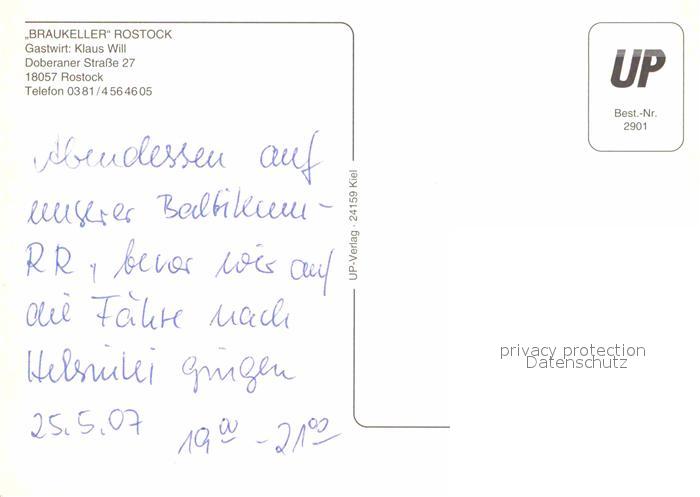 „BRAUKELLER“ ROSTOCK
Gastwirt: Klaus Will
Doberaner Straße 27
18057 Rostock
Telefon 03 81 / 4 56 46 05
Abendessen auf
unserer Baltikum-
RR, bevor wir auf
die Fähre nach
Helsinki gingen
25.5.07 19 00 - 21 00
UP-Verlag · 24159 Kiel
UP
Best.-Nr.
2901
privacy protection
Datenschutz